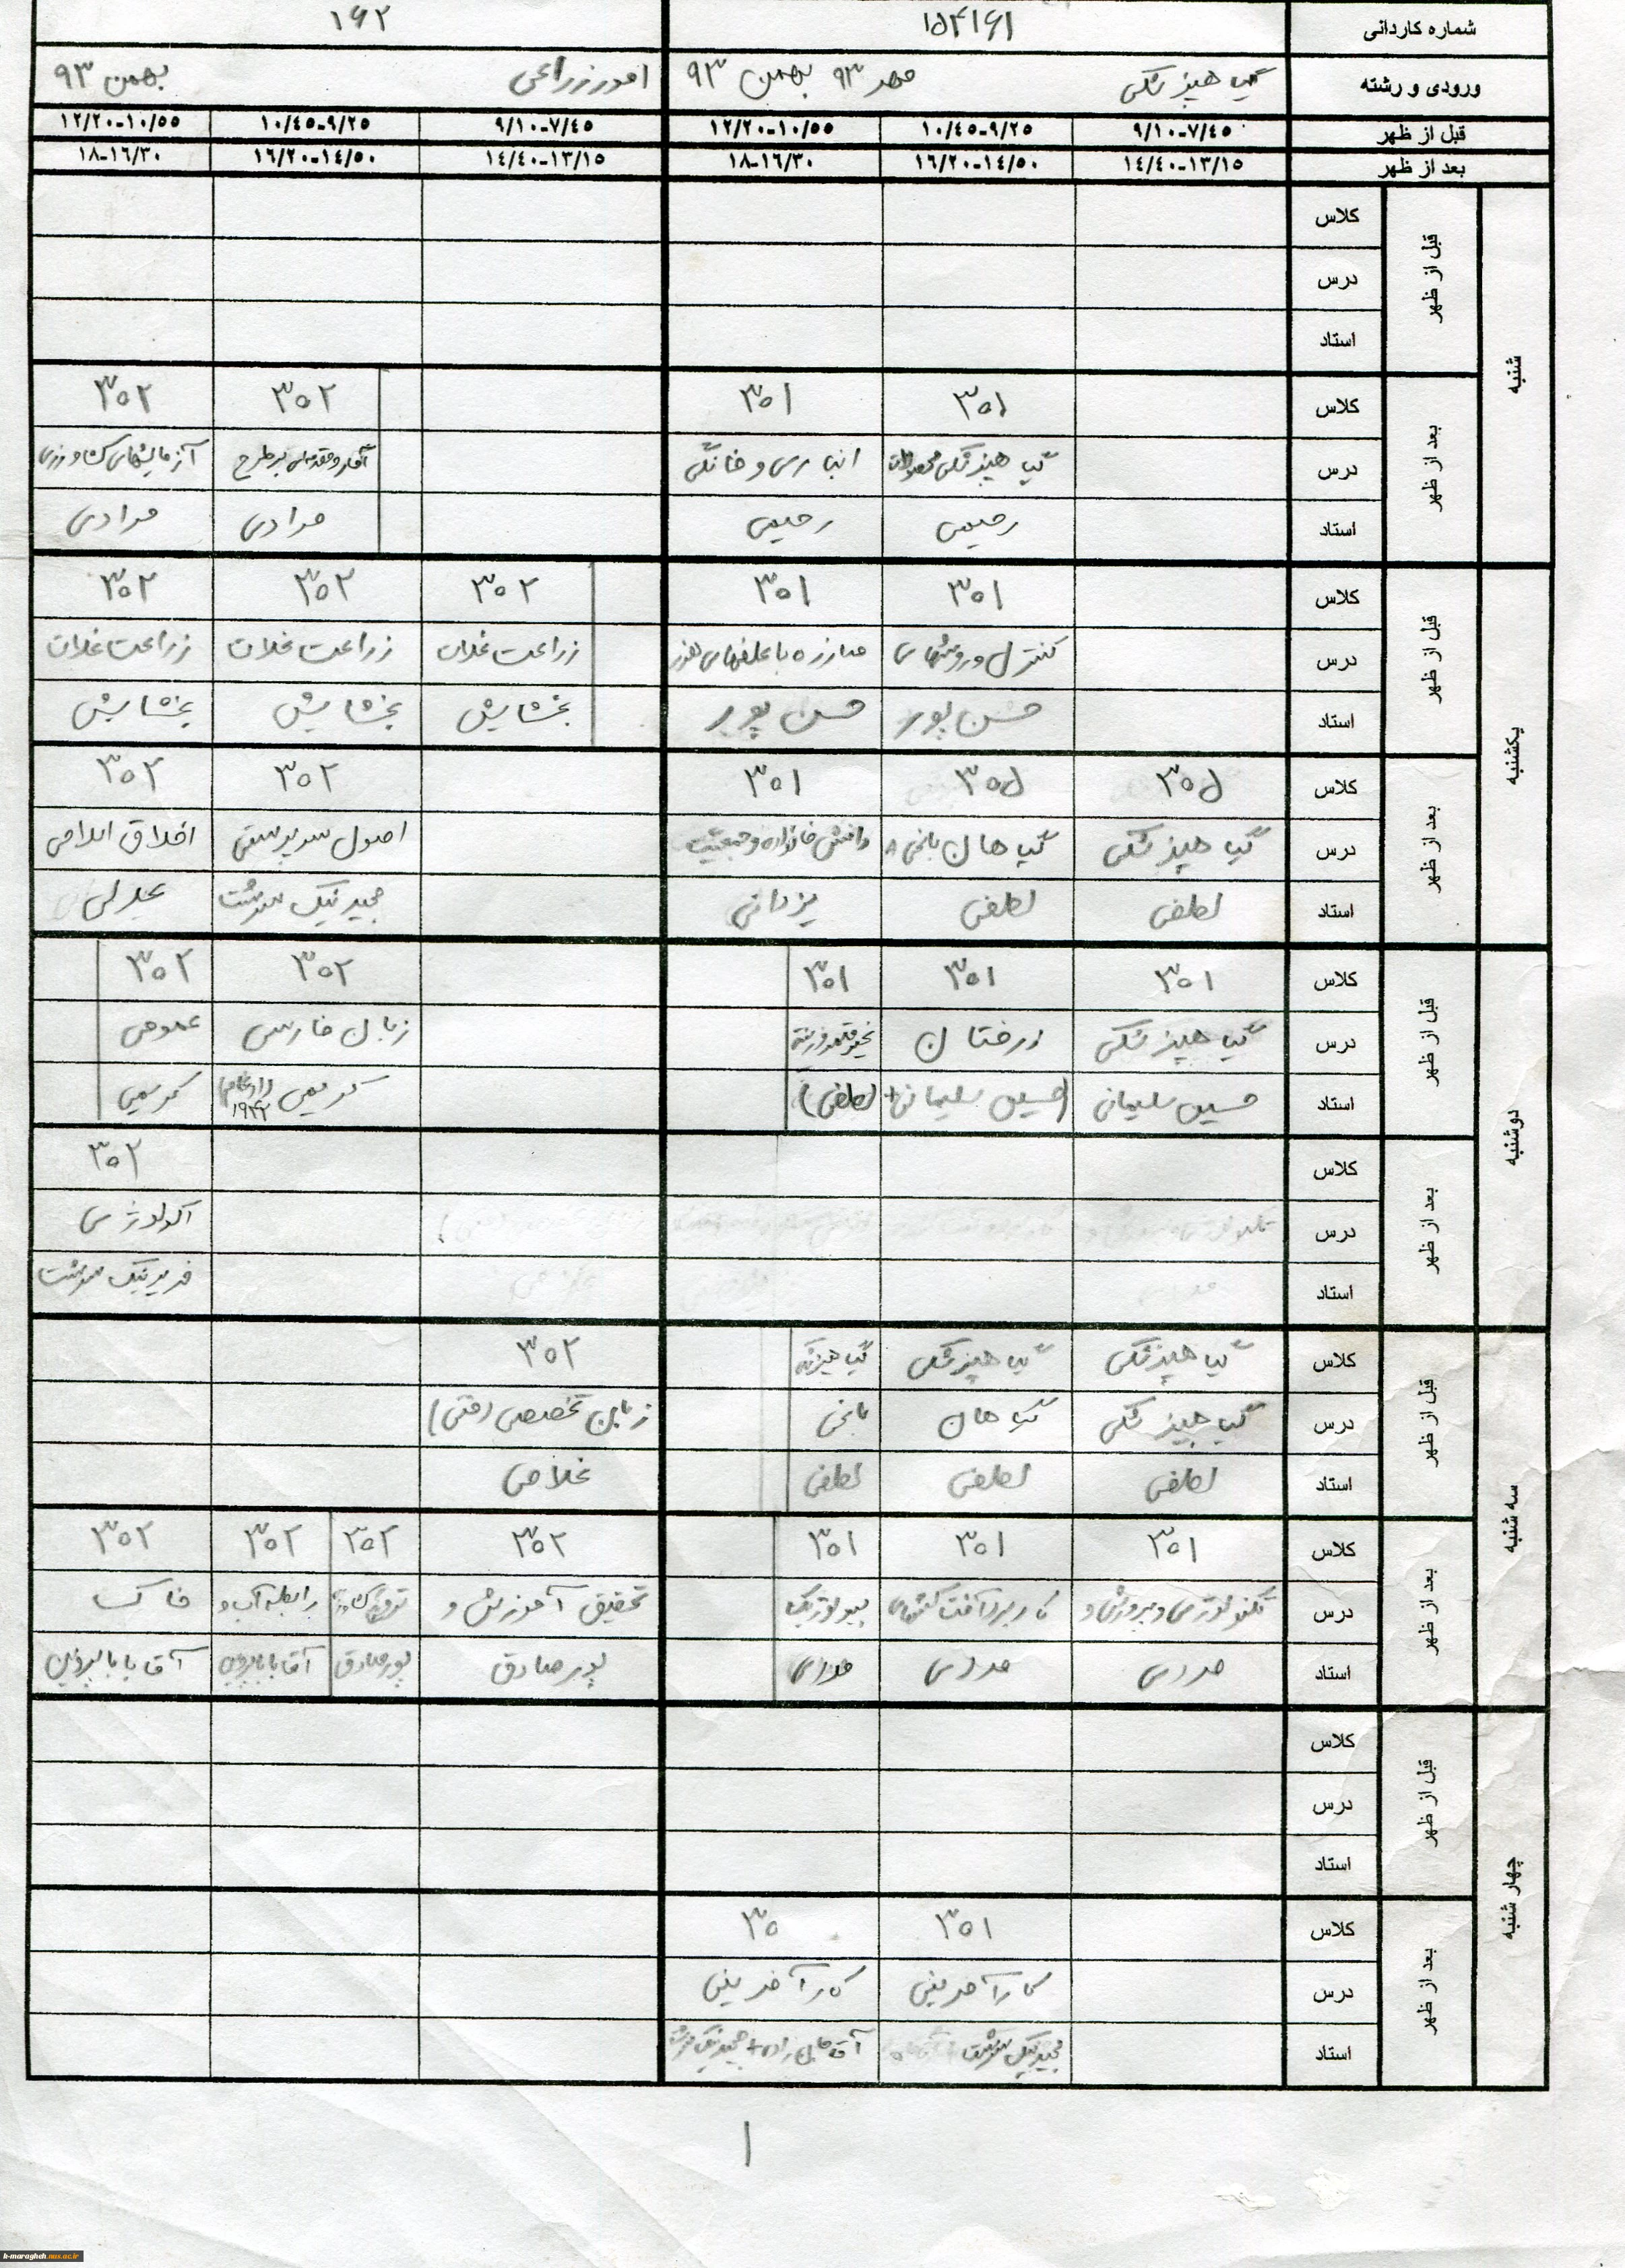 شماره کاردانی ۱۵۴۱۶۱ ۱۶۲
ورودی و رشته گیاهپزشکی مهر ۹۳ بهمن ۹۳ امور زراعی بهمن ۹۳
قبل از ظهر ۹/۱۰-۷/۴۵ ۱۰/۴۵-۹/۲۵ ۱۲/۲۰-۱۰/۵۵ ۹/۱۰-۷/۴۵ ۱۰/۴۵-۹/۲۵ ۱۲/۲۰-۱۰/۵۵
بعد از ظهر ۱۴/۴۰-۱۳/۱۵ ۱۶/۲۰-۱۴/۵۰ ۱۸-۱۶/۳۰ ۱۴/۴۰-۱۳/۱۵ ۱۶/۲۰-۱۴/۵۰ ۱۸-۱۶/۳۰
شنبه
قبل از ظهر
کلاس
درس
استاد
بعد از ظهر
کلاس ۳۰۱ ۳۰۱ ۳۰۲ ۳۰۲
درس گیاهپزشکی محصولات انباری و خانگی آمار و مقدمه‌ای بر طرح آزمایشهای کشاورزی
استاد رحیمی رحیمی مرادی مرادی
یکشنبه
قبل از ظهر
کلاس ۳۰۱ ۳۰۱ ۳۰۲ ۳۰۲ ۳۰۲
درس کنترل و روشهای مبارزه با علفهای هرز زراعت غلات زراعت غلات زراعت غلات
استاد حسن پور حسن پور بخشایش بخشایش بخشایش
بعد از ظهر
کلاس ۳۰۱ ۳۰۱ ۳۰۱ ۳۰۲ ۳۰۲
درس گیاهپزشکی گیاهان باغی دانش خانواده و جمعیت اصول سرپرستی اخلاق اسلامی
استاد لطفی لطفی یزدانی مجید نیک سرشت عدلی
دوشنبه
قبل از ظهر
کلاس ۳۰۱ ۳۰۱ ۳۰۱ ۳۰۲ ۳۰۲
درس گیاهپزشکی درختان زبان فارسی عمومی
استاد حسین سلیمانی (حسین سلیمانی+ لطفی) کریمی کریمی
بعد از ظهر
کلاس ۳۰۲
درس اکولوژی
استاد فرید نیک سرشت
سه شنبه
قبل از ظهر
کلاس گیاهپزشکی گیاهپزشکی گیاهپزشکی ۳۰۲
درس گیاهپزشکی گیاهان باغی زبان تخصصی (فنی)
استاد لطفی لطفی لطفی غلامی
بعد از ظهر
کلاس ۳۰۱ ۳۰۱ ۳۰۱ ۳۰۲ ۳۰۲ ۳۰۲ ۳۰۲
درس تکنولوژی و پرورش و کاربرد آفت کشهای بیولوژیک تحقیق آموزش و رابطه آب و خاک
استاد مددی مددی مددی پورصادق پورصادق آقابابا پروین آقابابا پروین
چهار شنبه
قبل از ظهر
کلاس
درس
استاد
بعد از ظهر
کلاس ۳۰۱ ۳۰
درس کارآفرینی کارآفرینی
استاد مجید نیک سرشت مجید نیک سرشت
۱
h-maragheh.aus.ac.ir